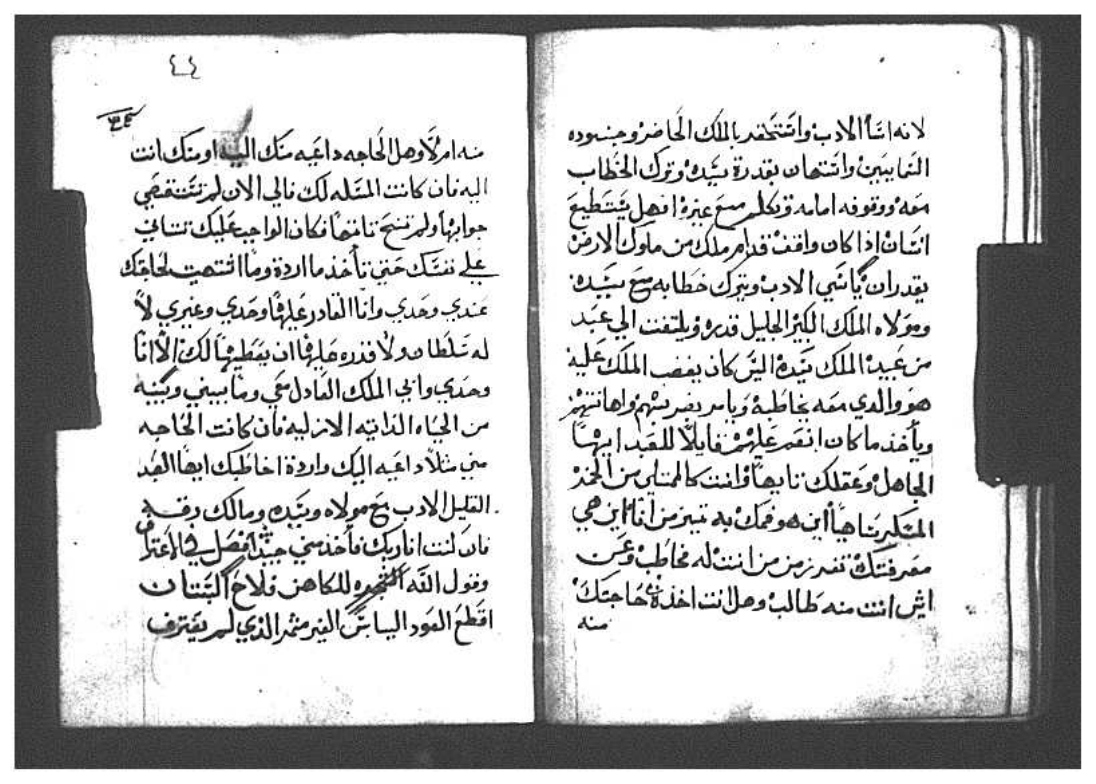 لانه اسا الادب واستحقر بالملك الحاضر وجنوده
السمايين واستهان بقدرة سيده وترك الخطاب
معه ووقوفه امامه وتكلم مع غيره افهل يستطيع
انسان اذا كان واقف قدام ملك من ملوك الارض
يقدر ان ياسي الادب ويترك خطابه مع سيده
ومولاه الملك الكبير الجليل قدره ويلتفت الي عبد
من عبيد الملك سيده اليس كان يغضب الملك عليه
هو والذي معه يخاطبه ويامر بضربتهم واهانتهم
وياخذ ما كان انعم عليهم قايلا للعبد ايها
الجاهل وعقلك تايها وانت كالمتلي من الخمر
المتكبر ساهيا اين هو فهمك به تميز من انا اين هي
معرفتك تفرز من من انت له مخاطب وعن
ايش انت منه طالب وهل انت اخذة حاجتك
منه
٤٤
٣٤
منه ام لا وهل الحاجه داعيه منك اليه او منك انت
اليه فان كانت المسله لك فالي الان لم تنقضي
جوابها ولم تنسمح تانيها فكان الواجب عليك تتاني
علي نفسك حتي تأخذ ما اردة وما اشتهت لحاجتك
عندي وحدي وانا القادر عليها وحدي وغيري لا
له سلطان ولا قدره عليها ان يعطيها لك الا انا
وحدي وابي الملك العادل معي وما بيني وبينه
من الحياه الذاتيه الازليه فان كانت الحاجه
مني مثلا داعيه اليك واردة اخاطبك ايها العبد
القليل الادب مع مولاه وسيده ومالك رقه
فان كنت انا ربك فأخذ مني جيدا افضل في الاعتراض
وقول الله للكاهن فلاح البستان
اقطع العود اليباس الغير مثمر الذي لم يعترف